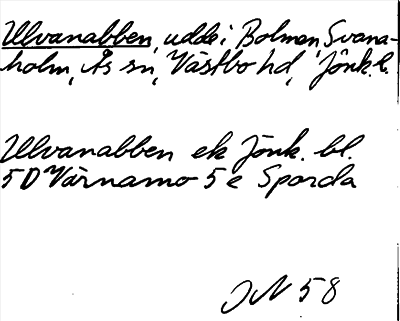 Ulvanabben, udde i Bolmen, Svana-
holm, Ås sn, Västbo hd, Jönk. l.
Ulvanabben ek Jönk. bl.
5D Värnamo 5e Sporda
JN 58